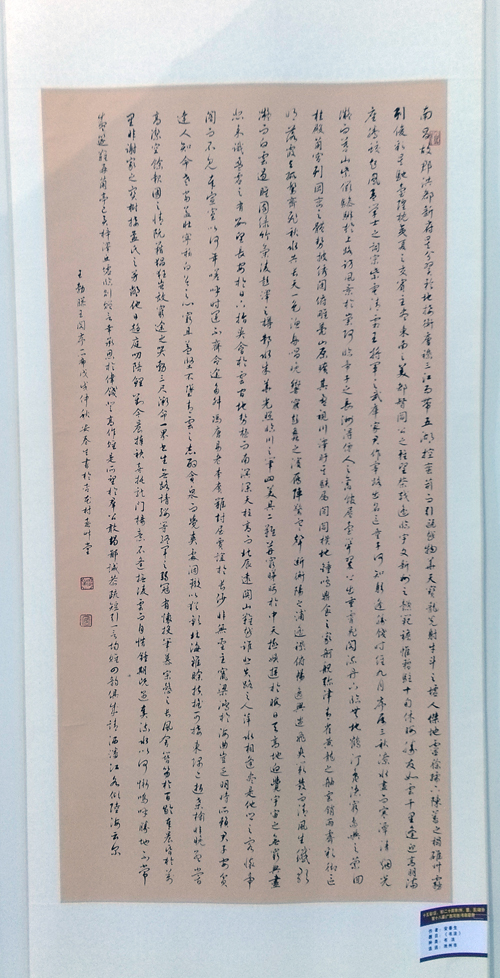 南昌故郡洪都新府星分翼軫地接衡廬襟三江而帶五湖控蠻荊而引甌越物華天寶龍光射牛斗之墟人傑地靈徐孺下陳蕃之榻雄州霧
列俊彩星馳臺隍枕夷夏之交賓主盡東南之美都督閻公之雅望棨戟遙臨宇文新州之懿範襜帷暫駐十旬休暇勝友如雲千里逢迎高朋滿
座騰蛟起鳳孟學士之詞宗紫電清霜王將軍之武庫家君作宰路出名區童子何知躬逢勝餞時維九月序屬三秋潦水盡而寒潭清煙光
凝而暮山紫儼驂騑於上路訪風景於崇阿臨帝子之長洲得仙人之舊館層臺聳翠上出重霄飛閣流丹下臨無地鶴汀鳧渚窮島嶼之縈回
桂殿蘭宮列岡巒之體勢披繡闥俯雕甍山原曠其盈視川澤紆其駭矚閭閻撲地鐘鳴鼎食之家舸艦彌津青雀黃龍之舳雲銷雨霽彩徹區
明落霞與孤鶩齊飛秋水共長天一色漁舟唱晚響窮彭蠡之濱雁陣驚寒聲斷衡陽之浦遙襟俯暢逸興遄飛爽籟發而清風生纖歌
凝而白雲遏睢園綠竹氣凌彭澤之樽鄴水朱華光照臨川之筆四美具二難并窮睇眄於中天極娛遊於暇日天高地迥覺宇宙之無窮興盡
悲來識盈虛之有數望長安於日下指吳會於雲間地勢極而南溟深天柱高而北辰遠關山難越誰悲失路之人萍水相逢盡是他鄉之客懷帝
閽而不見奉宣室以何年嗟呼時運不齊命途多舛馮唐易老李廣難封屈賈誼於長沙非無聖主竄梁鴻於海曲豈乏明時所賴君子安貧
達人知命老當益壯寧移白首之心窮且益堅不墜青雲之志酌貪泉而覺爽處涸轍以猶歡北海雖賒扶搖可接東隅已逝桑榆非晚孟嘗
高潔空餘報國之情阮籍猖狂豈效窮途之哭勃三尺微命一介書生無路請纓等終軍之弱冠有懷投筆慕宗愨之長風舍簪笏於百齡奉晨昏於萬
里非謝家之寶樹接孟氏之芳鄰他日趨庭叨陪鯉對今茲捧袂喜託龍門楊意不逢撫凌雲而自惜鍾期既遇奏流水以何慚嗚呼勝地不常
盛筵難再蘭亭已矣梓澤丘墟臨別贈言幸承恩於偉餞登高作賦是所望於群公敢竭鄙誠恭疏短引一言均賦四韻俱成請灑潘江各傾陸海云爾
王勃滕王閣序一節戊戌仲秋安春生書於杏花村